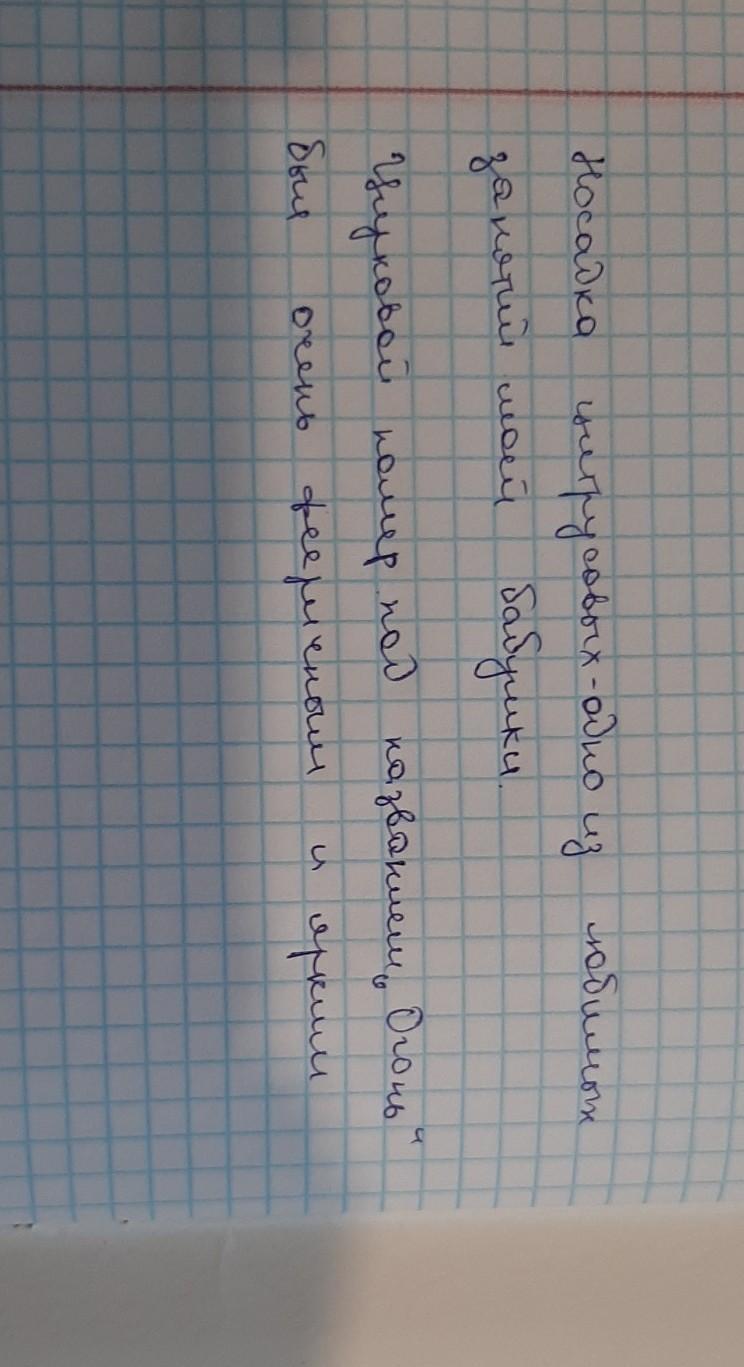 Посадка цитрусовых - одно из любимых
занятий моей бабушки.
Цирковой номер под названием „Огонь“
был очень фееричным и ярким